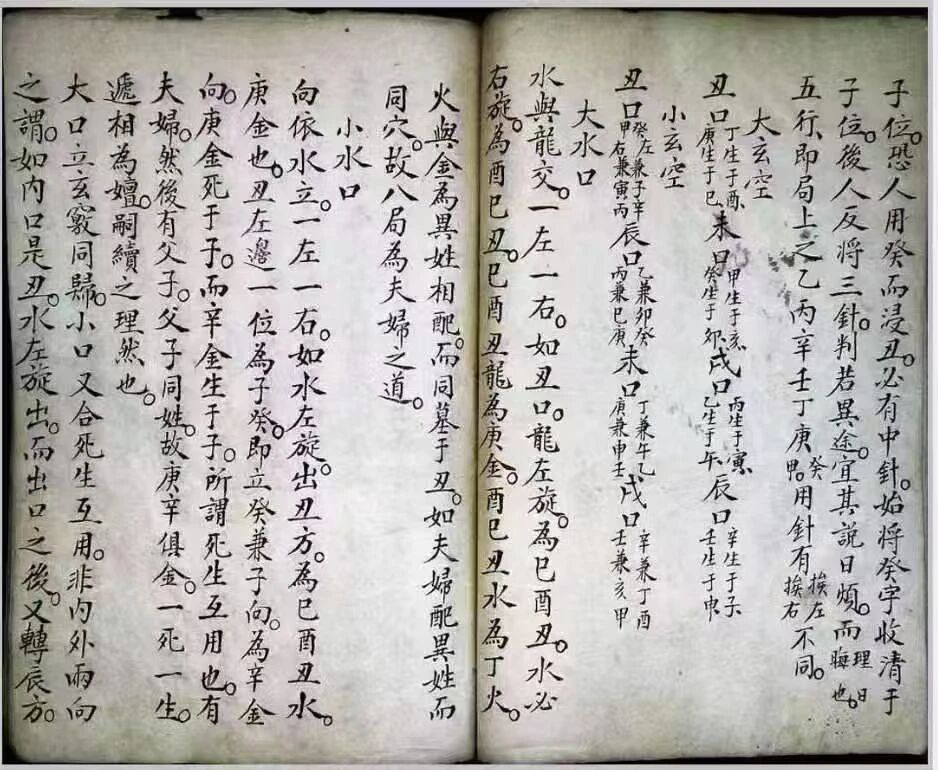 子位。恐人用癸而浸丑。必有中針。始將癸字收清于
子位。後人反將三針。判若異途。宜其說日煩。而理日晦也。
五行、即局上之乙丙辛壬丁庚癸甲。用針有挨左挨右不同。
大玄空
丑口丁生于酉庚生于巳未口甲生于亥癸生于卯戌口丙生于寅乙生于午辰口辛生于子壬生于申
小玄空
丑口癸左兼子辛甲右兼寅丙辰口乙兼卯癸丙兼巳庚未口丁兼午乙庚兼申壬戌口辛兼丁酉壬兼亥甲
大水口
水與龍交。一左一右。如丑口。龍左旋。為巳酉丑。水必
右旋。為酉巳丑。巳酉丑龍為庚金。酉巳丑水為丁火。
火與金為異姓相配。而同墓于丑。如夫婦配異姓而
同穴。故八局為夫婦之道。
小水口
向依水立。一左一右。如水左旋。出丑方。為巳酉丑水。
庚金也。丑左邊一位為子癸。即立癸兼子向。為辛金
向。庚金死于子。而辛金生于子。所謂死生互用也。有
夫婦。然後有父子。父子同姓。故庚辛俱金。一死一生。
遞相為嬗。嗣續之理然也。
大口立玄竅同歸。小口又合死生互用。非內外兩向
之謂。如內口是丑。水左旋出。而出口之後。又轉辰方。